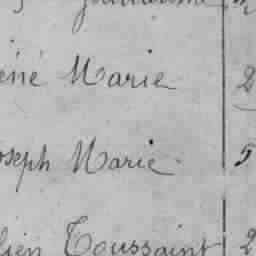 éné Marie 2
oseph Marie 5
lien Toussaint 2